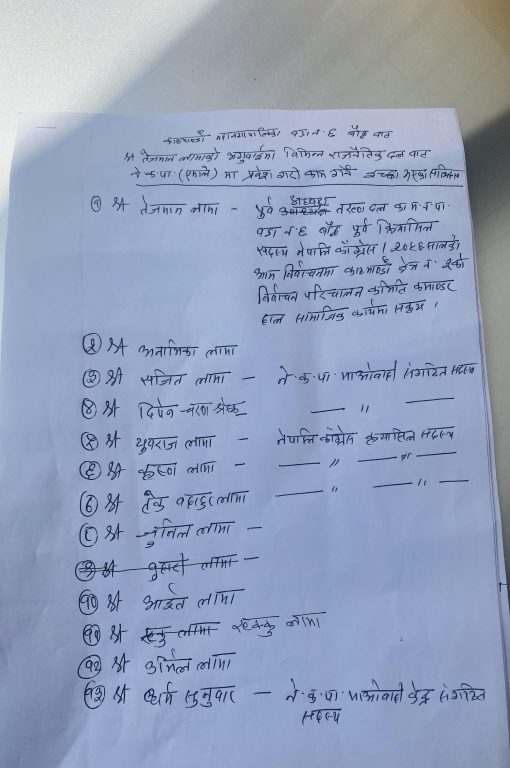 काठमाण्डौ महानगरपालिका वडा नं. ६ बौद्ध बाट
श्री तेजमान लामाको अगुवाईमा विभिन्न राजनैतिक दल बाट
ने क पा (एमाले) मा प्रवेश गरी काम गर्ने इच्छा भएका
१ श्री तेजमान लामा - पुर्व अध्यक्ष तरुण दल का.म.न.पा.
वडा नं ६ बौद्ध पुर्व क्रियासिल
सदस्य नेपालि काँग्रेस । २०५६ सालको
आम निर्वाचनमा काठमाण्डौ क्षेत्र नं
निर्वाचन परिचालन कमिति कमाण्डर
हाल सामाजिक कार्यमा सक्रय ।
२ श्री अनामिका लामा
३ श्री सजित लामा - ने. क. पा. माओवादी संगठित सदस्य
४ श्री दिपेन चरण श्रेष्ठ — " —
५ श्री युवराज लामा - नेपालि काँग्रेस क्रयासिल सदस्य
६ श्री कृष्ण लामा - — " — " —
७ श्री टेक बहादुर लामा — " — " —
८ श्री सुनिल लामा -
९ श्री लामा -
१० श्री आईत लामा
११ श्री लामा लामा
१२ श्री उर्मिल लामा
१३ श्री कर्म सुनुवार - ने. क. पा. माओवादी केन्द्र संगठित
सदस्य